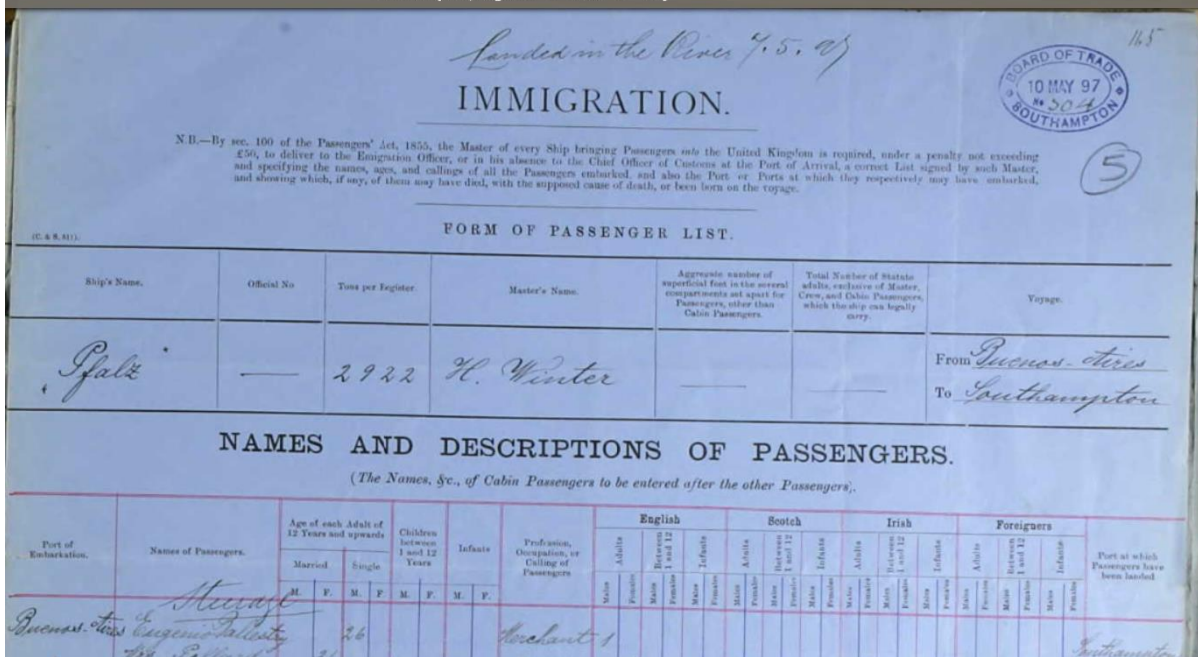 Landed in the River 7.5.97
165
BOARD OF TRADE
10 MAY 97
No 504
SOUTHAMPTON
IMMIGRATION.
5
N.B.—By sec. 100 of the Passengers' Act, 1855, the Master of every Ship bringing Passengers into the United Kingdom is required, under a penalty not exceeding
£50, to deliver to the Emigration Officer, or in his absence to the Chief Officer of Customs at the Port of Arrival, a correct List signed by such Master,
and specifying the names, ages, and callings of all the Passengers embarked, and also the Port or Ports at which they respectively may have embarked,
and showing which, if any, of them may have died, with the supposed cause of death, or been born on the voyage.
FORM OF PASSENGER LIST.
Ship's Name.
Official No
Tons per Register.
Master's Name.
Aggregate number of
superficial feet in the several
compartments set apart for
Passengers, other than
Cabin Passengers.
Total Number of Statute
adults, exclusive of Master,
Crew, and Cabin Passengers,
which the ship can legally
carry.
Voyage.
Pfalz
2922
H. Winter
From Buenos-Aires
To Southampton
NAMES AND DESCRIPTIONS OF PASSENGERS.
(The Names, &c., of Cabin Passengers to be entered after the other Passengers).
Port of
Embarkation.
Names of Passengers.
Age of each Adult of
12 Years and upwards
Married
Single
M. F. M. F
Children
between
1 and 12
Years
M. F.
Infants
M. F.
Profession,
Occupation, or
Calling of
Passengers
English
Adults
Between
1 and 12
Infants
Males Females Males Females Males Females
Scotch
Adults
Between
1 and 12
Infants
Males Females Males Females Males Females
Irish
Adults
Between
1 and 12
Infants
Males Females Males Females Males Females
Foreigners
Adults
Between
1 and 12
Infants
Males Females Males Females Males Females
Port at which
Passengers have
been landed
Buenos-Aires Eugenio 26 Merchant 1 Southampton